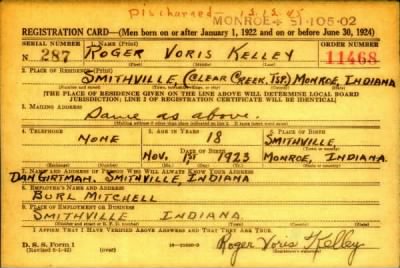 Discharged- 12.12.45
MONROE 51-105-02
REGISTRATION CARD—(Men born on or after January 1, 1922 and on or before June 30, 1924)
SERIAL NUMBER 1. NAME (Print) ORDER NUMBER
N 287 ROGER VORIS KELLEY 11468
(First) (Middle) (Last)
2. PLACE OF RESIDENCE (Print)
SMITHVILLE, (CLEAR CREEK, TSP.) MONROE, INDIANA
(Number and street) (Town, township, village, or city) (County) (State)
[THE PLACE OF RESIDENCE GIVEN ON THE LINE ABOVE WILL DETERMINE LOCAL BOARD
JURISDICTION; LINE 2 OF REGISTRATION CERTIFICATE WILL BE IDENTICAL]
3. MAILING ADDRESS
Same as above.
[Mailing address if other than place indicated on line 2. If same insert word same]
4. TELEPHONE 5. AGE IN YEARS 6. PLACE OF BIRTH
NONE 18 SMITHVILLE,
DATE OF BIRTH (Town or county)
NOV. 1st 1923 MONROE, INDIANA.
(Exchange) (Number) (Mo.) (Day) (Yr.) (State or country)
7. NAME AND ADDRESS OF PERSON WHO WILL ALWAYS KNOW YOUR ADDRESS
DAN GIRTMAN. SMITHVILLE, INDIANA
8. EMPLOYER'S NAME AND ADDRESS
BURL MITCHELL
9. PLACE OF EMPLOYMENT OR BUSINESS
SMITHVILLE INDIANA
(Number and street or R. F. D. number) (Town) (County) (State)
I AFFIRM THAT I HAVE VERIFIED ABOVE ANSWERS AND THAT THEY ARE TRUE.
D. S. S. Form 1 (over)
Roger Voris Kelley